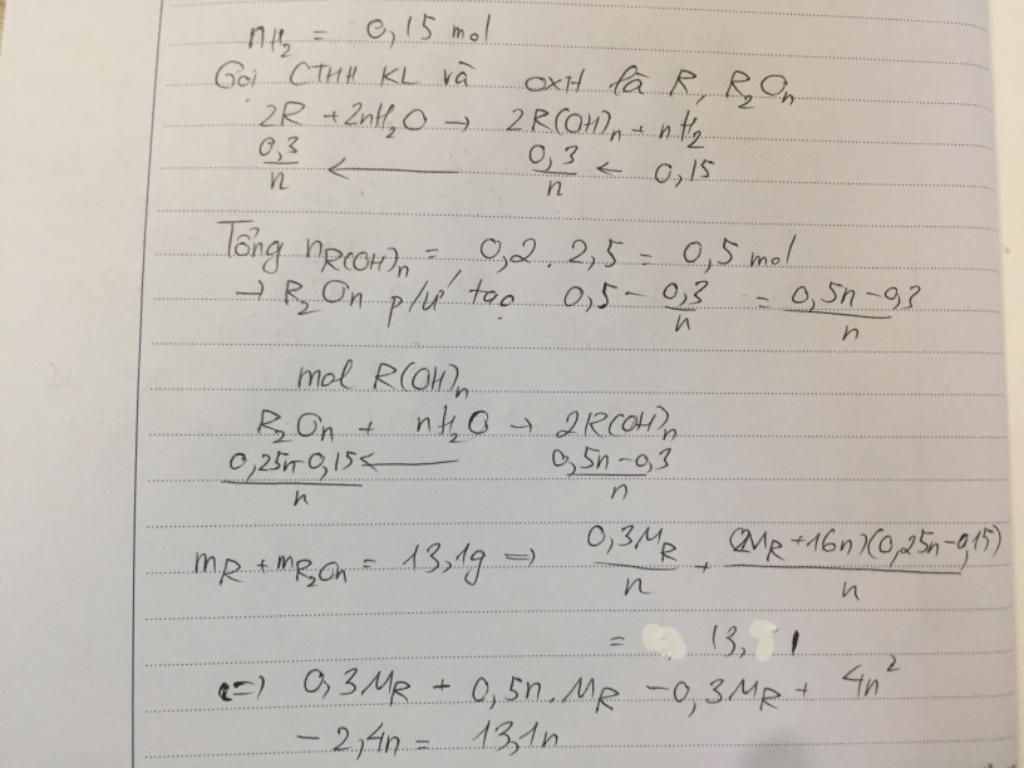 nH₂ = 0,15 mol
Gọi CTHH KL và OXH là R, R₂Oₙ
2R + 2nH₂O → 2R(OH)ₙ + nH₂
0,3/n ← 0,3/n ← 0,15
Tổng nR(OH)ₙ = 0,2 . 2,5 = 0,5 mol
→ R₂Oₙ p/ứ tạo 0,5 - 0,3/n = (0,5n - 0,3)/n
mol R(OH)ₙ
R₂Oₙ + nH₂O → 2R(OH)ₙ
(0,25n - 0,15)/n ← (0,5n - 0,3)/n
mR + mR₂Oₙ = 13,1g => 0,3MR/n + (2MR + 16n)(0,25n - 0,15)/n
= 13,1
<=> 0,3MR + 0,5n.MR - 0,3MR + 4n²
- 2,4n = 13,1n